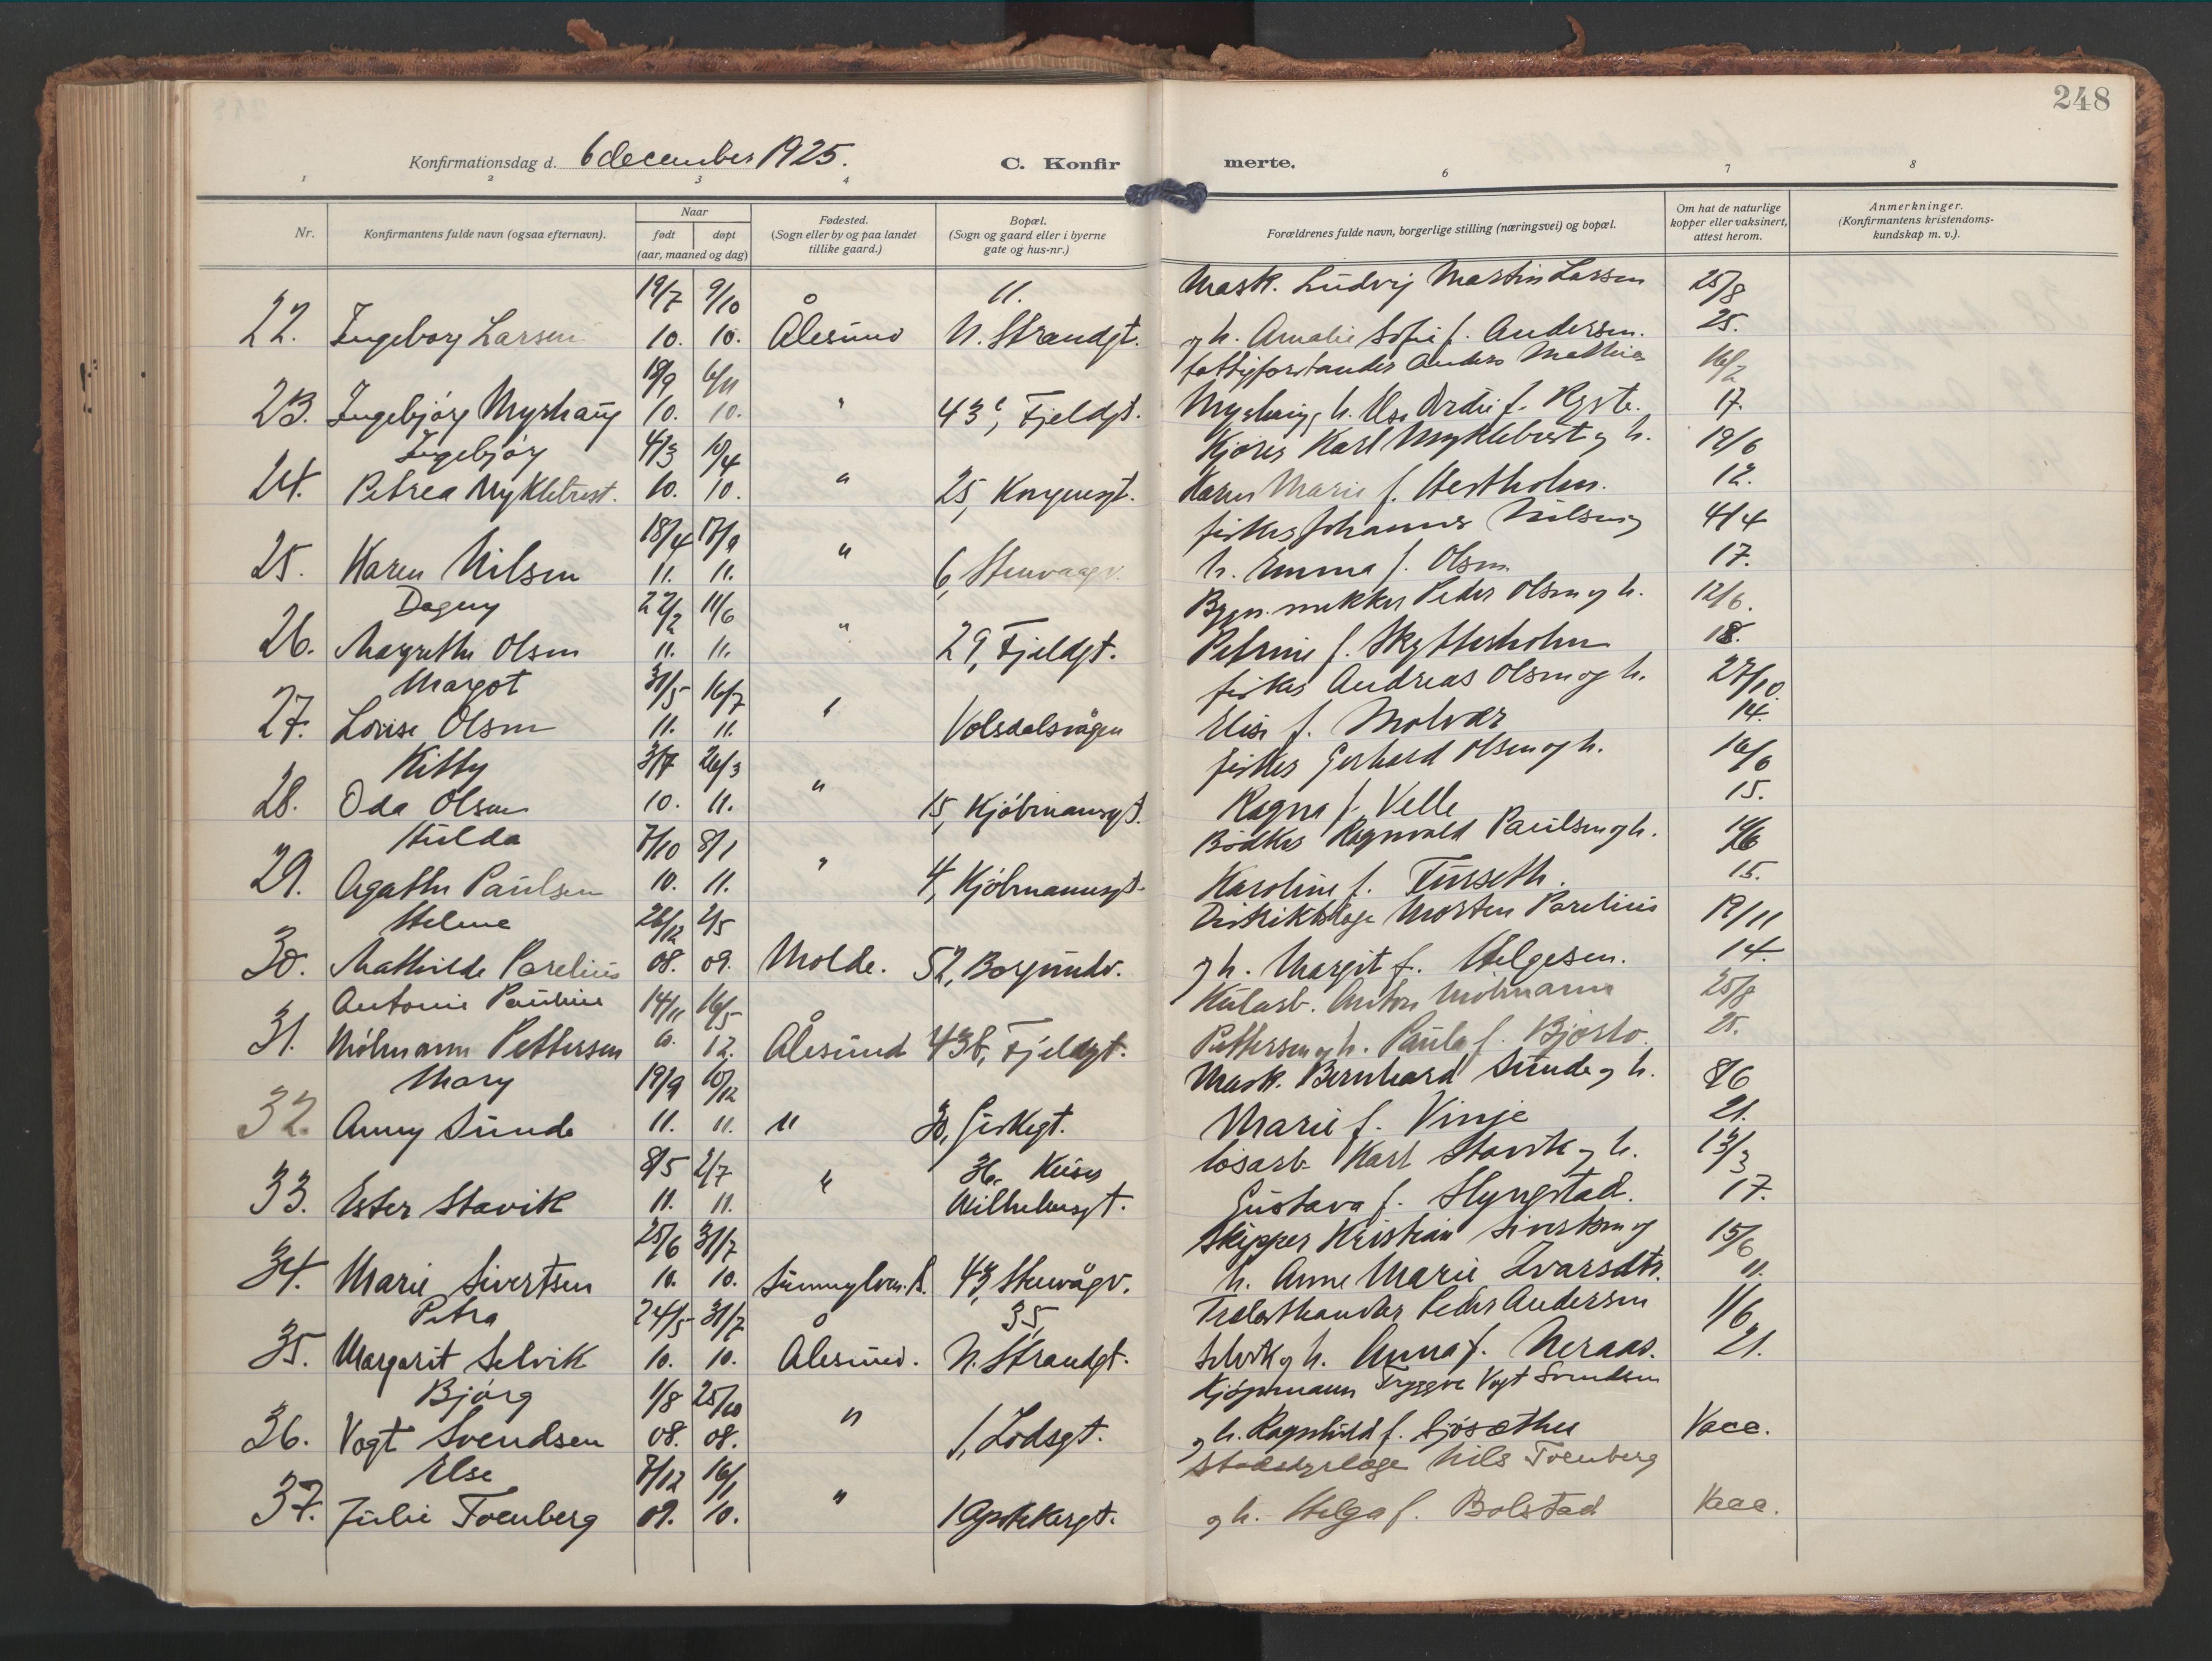 248
Konfirmationsdag d. 6 december 1925. C. Konfirmerte.
1 2 3 4 6 7 8
Nr. Konfirmantens fulde navn (ogsaa efternavn). Naar født døpt (aar, maaned og dag) Fødested. (Sogn eller by og paa landet tillike gaard.) Bopæl. (Sogn og gaard eller i byerne gate og hus-nr.) Forældrenes fulde navn, borgerlige stilling (næringsvei) og bopæl. Om hat de naturlige kopper eller vaksinert, attest herom. Anmerkninger. (Konfirmantens kristendomskundskap m. v.).
19/7 9/10 11. Mask. Ludvig Martin Larsen 25/8
22. Ingeborg Larsen 10. 10. Ålesund N. Strandgt. og h. Amalie Sofie f. Andersen. 25.
18/9 6/11 fattigforstander Anders Mathias 16/2
23. Ingebjørg Myrhaug 10. 10. " 43c, Fjeldgt. Myrhaug, h. f. 17.
Ingebjørg 4/3 10/4 Kjører Karl Myklebust og h. 19/6
24. Petrea Myklebust. 10. 10. " 25, Kongensgt. Karen Marie f. Hestholm. 12.
18/4 17/9 fisker Johannes Nilsen og 4/4
25. Karen Nilsen 11. 11. " 6, Stenvaagv. h. Emma f. Olsen 17.
Dagny 27/2 11/6 Bygn.snekker Peder Olsen og h. 12/6.
26. Margrethe Olsen 11. 11. " 29, Fjeldgt. Petrine f. Skytterholm 18.
Margot 31/5 16/7 fisker Andreas Olsen og h. 27/10.
27. Lovise Olsen 11. 11. " Volsdalsvågen Elise f. Molvær 14.
Kitty 3/7 26/3 fisker Gerhard Olsen og h. 16/6
28. Oda Olsen 10. 11. " 15, Kjøbmansgt. Ragna f. Velle 15.
Hulda 7/10 8/1 Bødker Ragnvald Paulsen og h. 14/6
29. Agathe Paulsen 10. 11. " 4, Kjøbmannsgt. Karoline f. Tusseth. 15.
Helene 26/12 2/5 Distriktslæge Morten Parelius 19/11
30. Mathilde Parelius 08. 09. Molde. 52, Borgundv. og h. Margit f. Helgesen. 14.
Antonie Pauline 14/11 16/5 Kularb. Anton Mölmann 25/8
31. Mölmann Pettersen 12. Ålesund 43b, Fjeldgt. Pettersen og h. Paula f. Bjørlo. 25.
Mary 19/9 10/12 Mask. Bernhard Sunde og h. 8/6
32. Anny Sunde 11. 11. " 30, Girkegt. Marie f. Vinje 21.
8/5 2/7 36, Keiser løsarb. Karl Stavik og h. 13/3
33. Ester Stavik 11. 11. " Wilhelmsgt. Gustava f. Slyngstad. 17.
25/6 31/7 Skipper Kristian Sivertsen og 15/6
34. Marie Sivertsen 10. 10. Sunnylven. S. 43, Stenvågv. h. Anne Marie Ivarsdtr. 11.
Petra 24/5 31/7 35, Trælasthandler Peder Andersen 1/6
35. Margarit Selvik 10. 10. Ålesund. N. Strandgt. Selvik og h. Anna f. Neraas. 21.
Bjørg 1/8 25/10 Kjøpmann Tryggve Vogt Svendsen
36. Vogt Svendsen 08. 08. " 1, Lodsgt. og h. Ragnhild f. Sjøsæther Vacc.
Else 7/12 16/1 Stadsdyrlæge Nils Tvenberg
37. Julie Tvenberg 09. 10. " 1 Apotekergt. og h. Helga f. Bolstad Vacc.